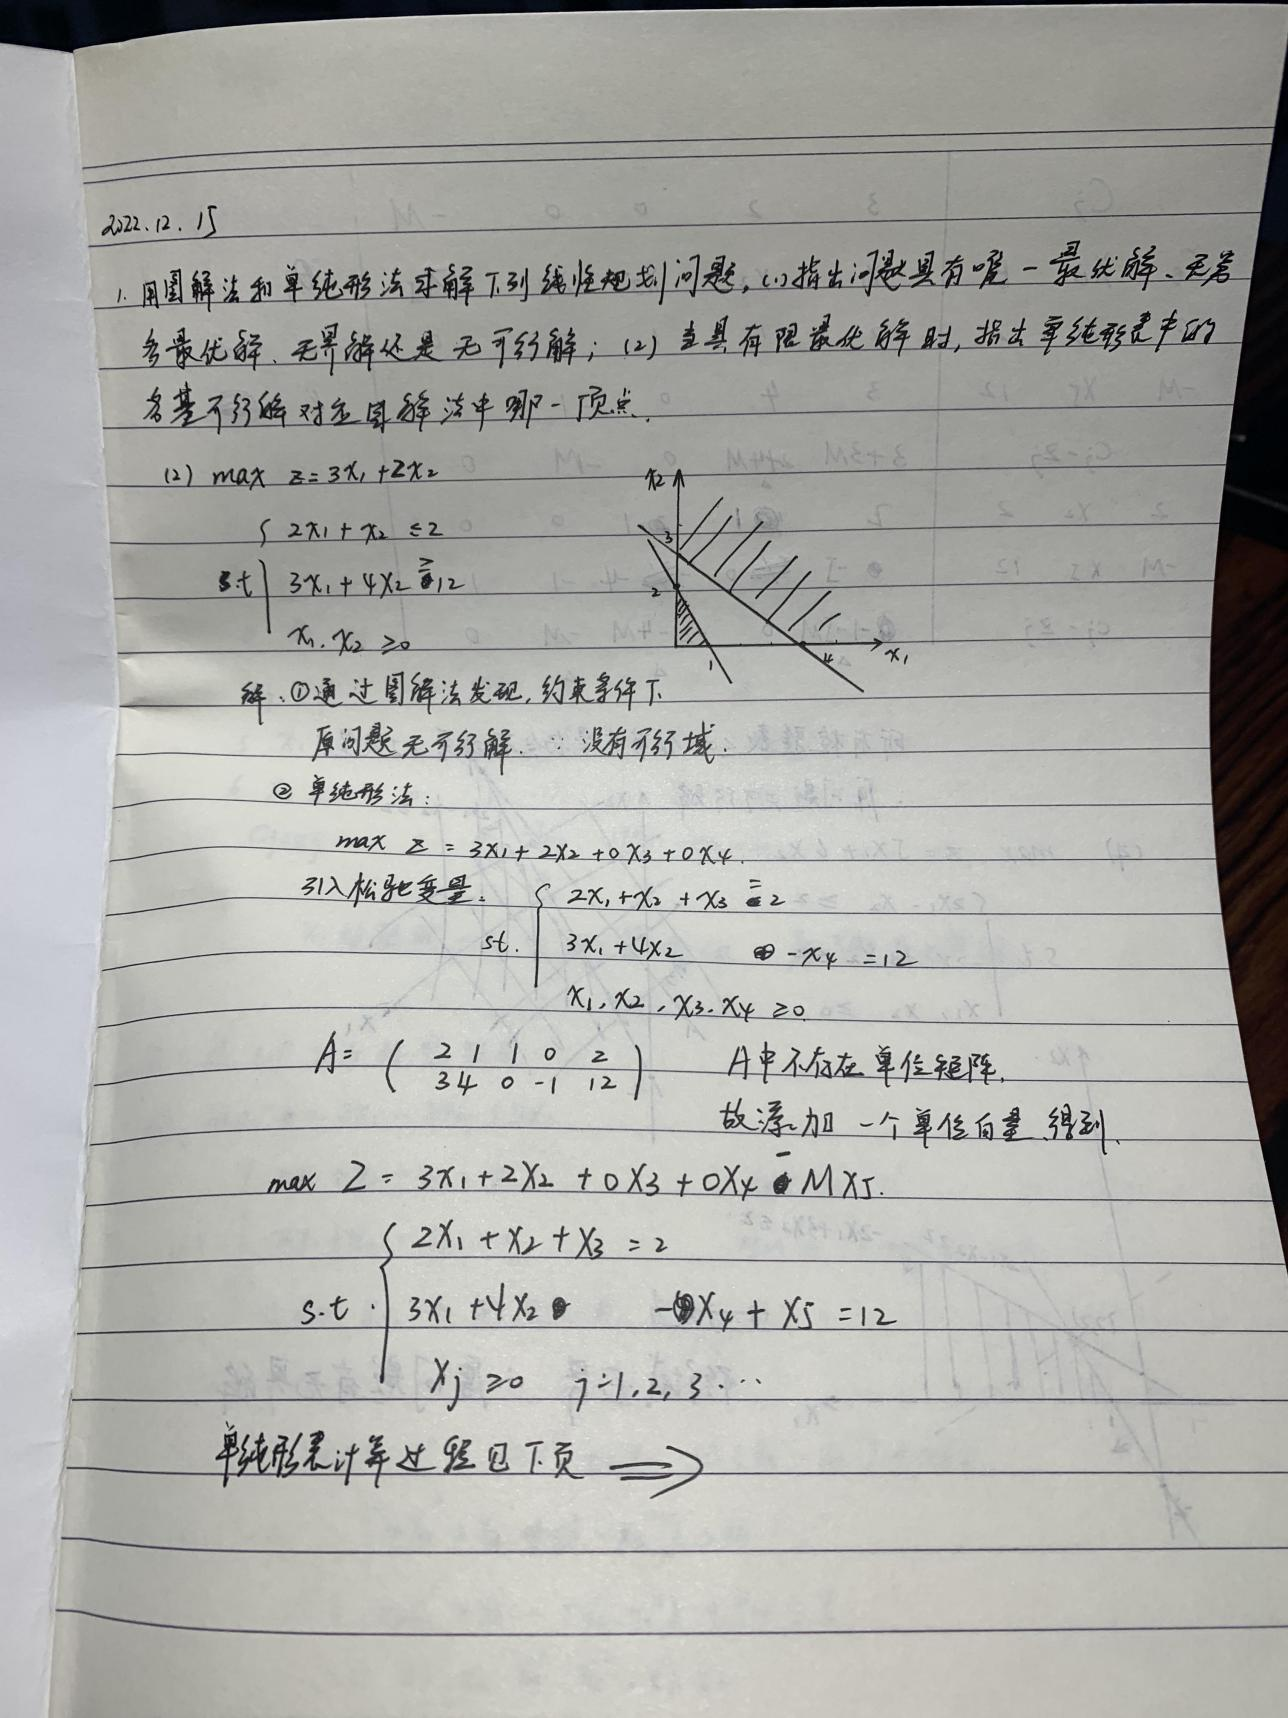 2022.12.15
1. 用图解法和单纯形法求解下列线性规划问题,(1)指出问题具有唯一最优解、无穷
多最优解、无界解还是无可行解;(2)当具有限最优解时,指出单纯形表中的
各基可行解对应图解法中哪一顶点.
(2) max z=3x₁+2x₂
2x₁+x₂ ≤2
s.t 3x₁+4x₂ ≥12
x₁.x₂ ≥0
x₂
3
2
1
4
x₁
解:①通过图解法发现,约束条件下
原问题无可行解. ∵ 没有可行域.
② 单纯形法:
max z = 3x₁+2x₂+0x₃+0x₄.
引入松驰变量. 2x₁+x₂+x₃ = 2
st. 3x₁+4x₂ -x₄ =12
x₁.x₂.x₃.x₄ ≥0.
A= ( 2 1 1 0 2
3 4 0 -1 12 )
A中不存在单位矩阵.
故添加一个单位向量 得到.
max Z = 3x₁+2x₂+0x₃+0x₄-Mx₅.
2x₁+x₂+x₃ = 2
s.t. 3x₁+4x₂ -x₄+x₅ =12
xj ≥0 j=1,2,3…
单纯形表计算过程见下页 ⟹